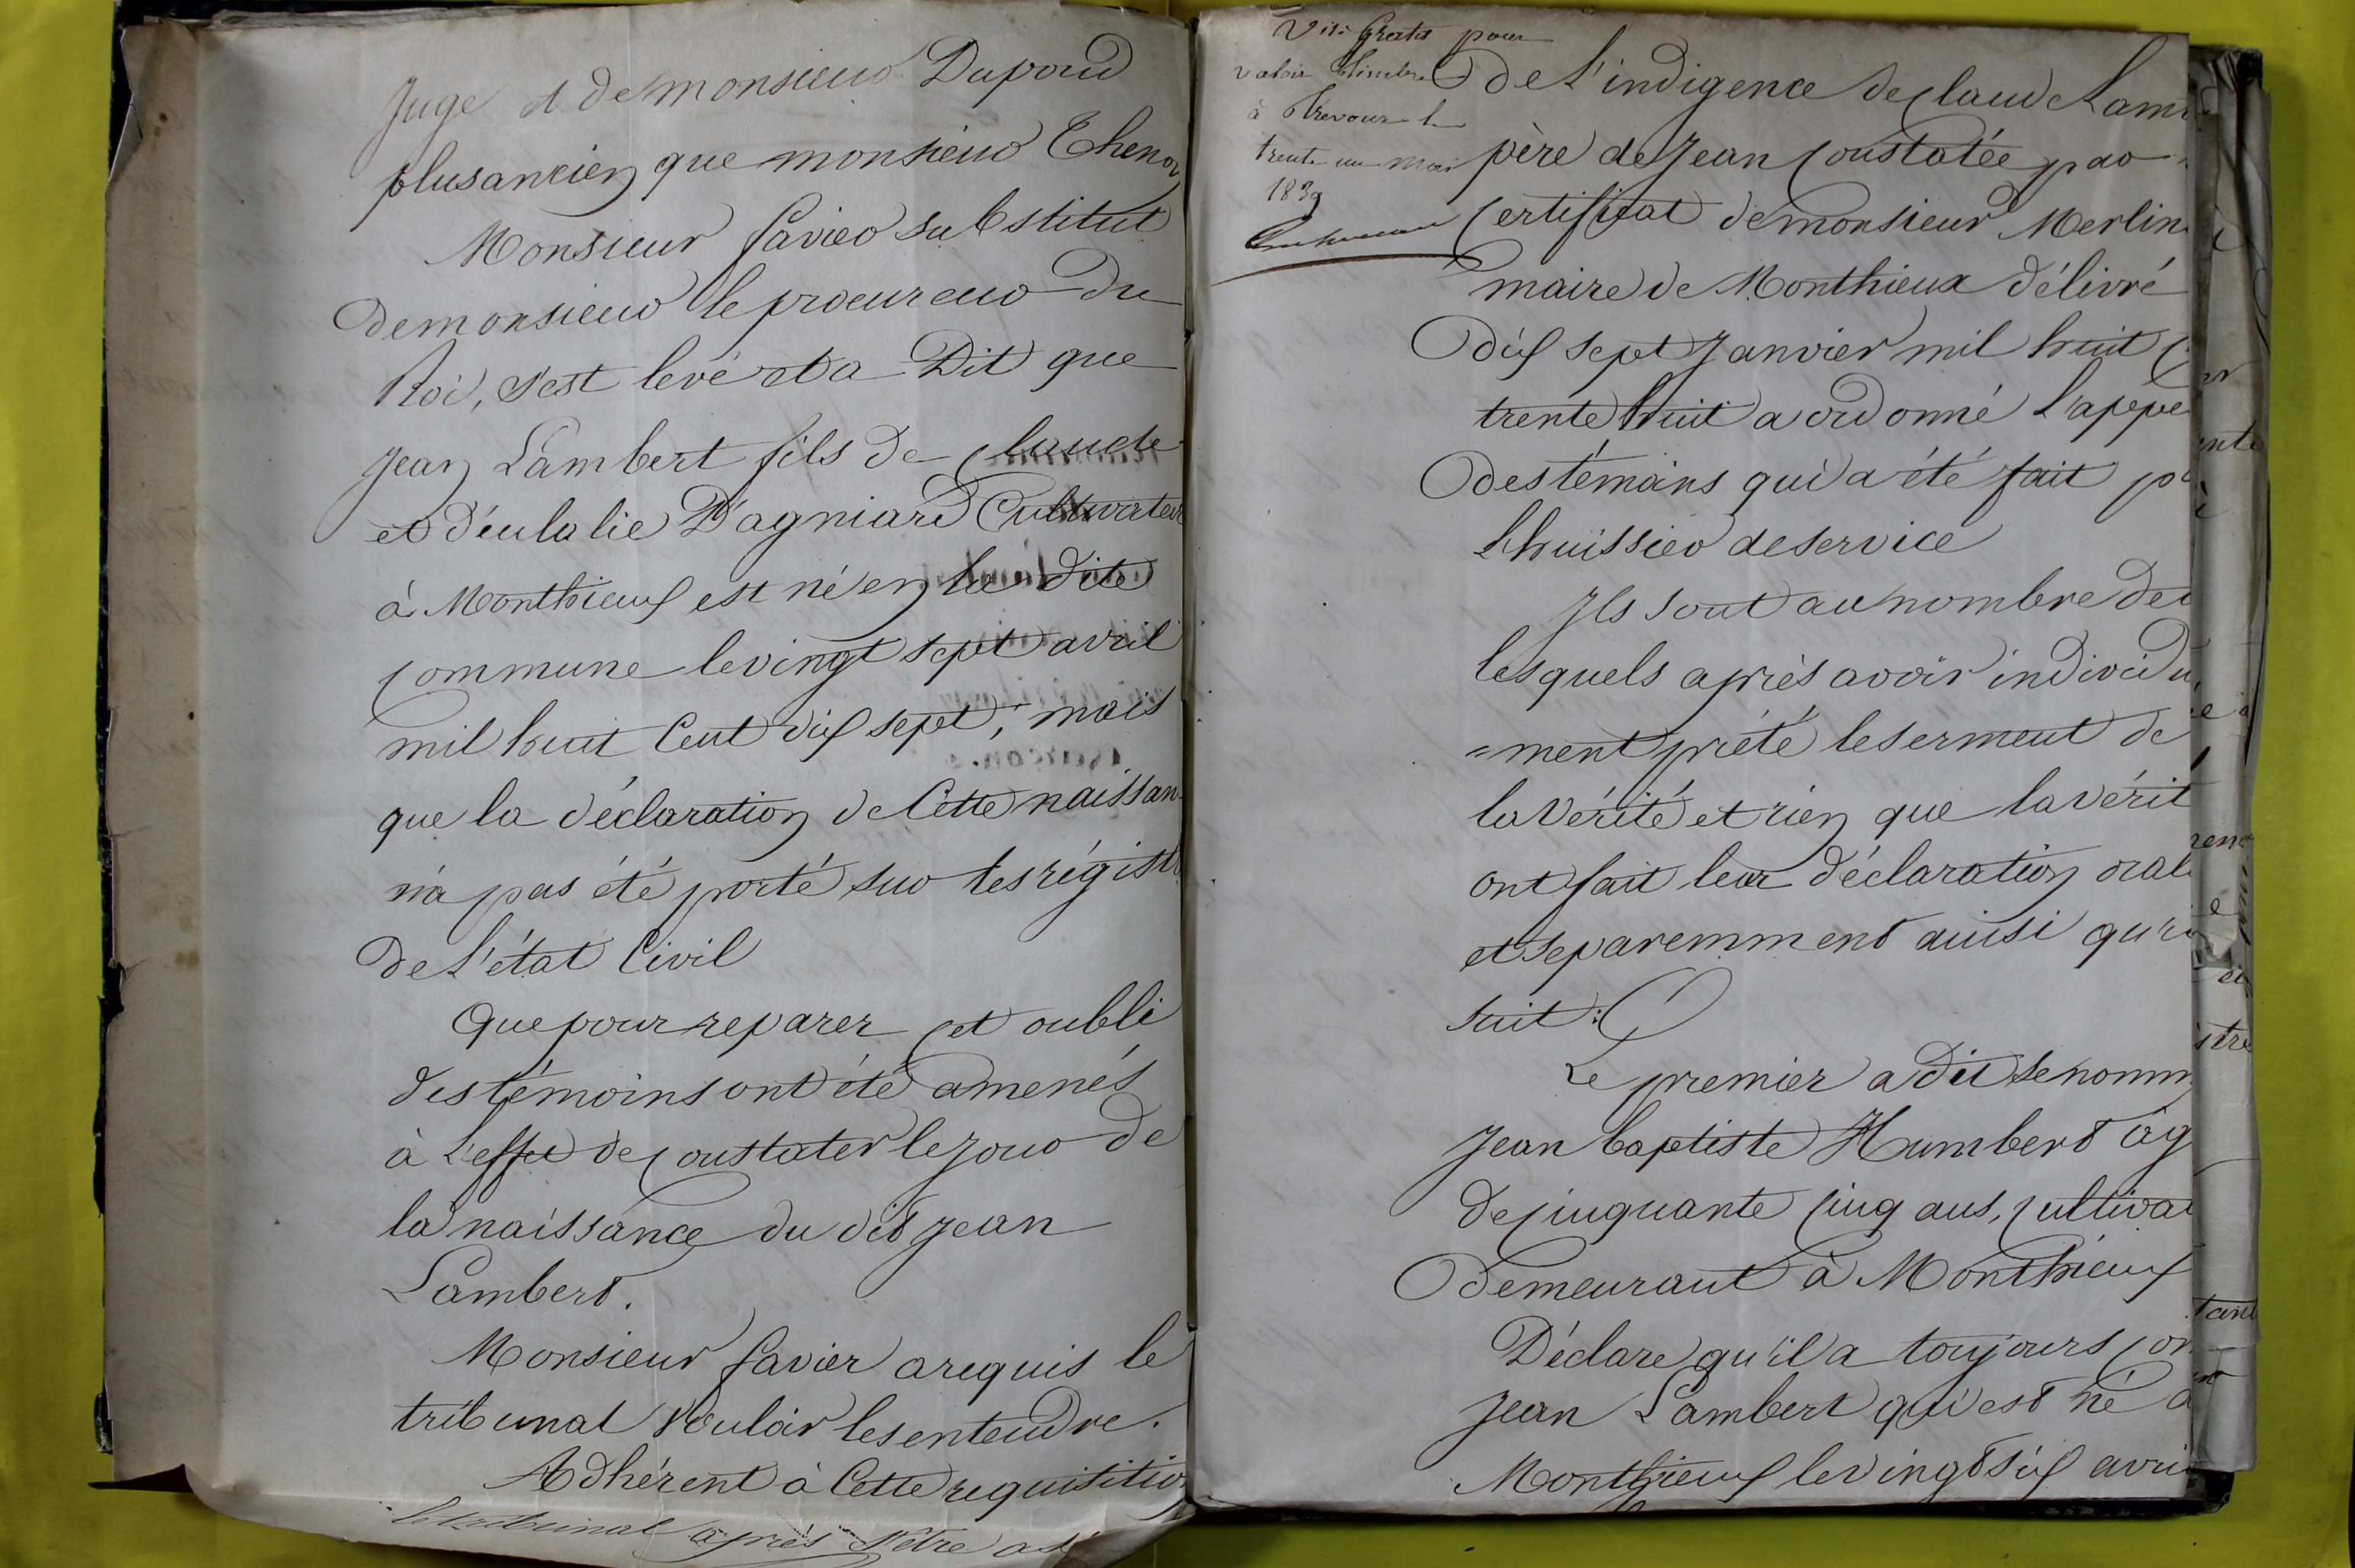 Juge et de monsieur Dupond
plus ancien que monsieur Thenon
Monsieur favier substitut
de monsieur le procureur du
Roi, s'est levé et a Dit que
Jean Lambert fils de claude
et d'eulalie Dagniard Cultivateur
à Monthieux est né en la dite
commune le vingt sept avril
mil huit Cent dix sept; mais
que la déclaration de Cette naissan
n'a pas été porté sur les régistr
de L'état Civil
Que pour reparer cet oubli
des témoins ont été amenés
à l'effet de constater le jour de
la naissance du dit Jean
Lambert.
Monsieur favier a requis le
tribunal Vouloir les entendre.
Adhérent à Cette requisition
le tribunal après s'être as
Visé Gratis pour
valoir timbre
à Trevoux le
trente un mai
1839
de L'indigence de claude Lam
père de Jean constatée par
Certificat de monsieur Merlin
maire de Monthieux délivré
dix sept Janvier mil huit C
trente huit a ordonné L'appe
des témoins qui a été fait p
L'huissier de service
Ils sont au nombre de
lesquels après avoir individu
=ment prété le serment de
la Vérité et rien que la vérit
ont fait leur déclaration oral
et separemment ainsi qu'i
suit:
Le premier a dit se nomm
Jean baptiste Humbert âg
de cinquante cinq ans, cultivat
demeurant à Monthieux
Déclare qu'il a toujours con
Jean Lambert qui est né à
Monthieux le vingt six avri